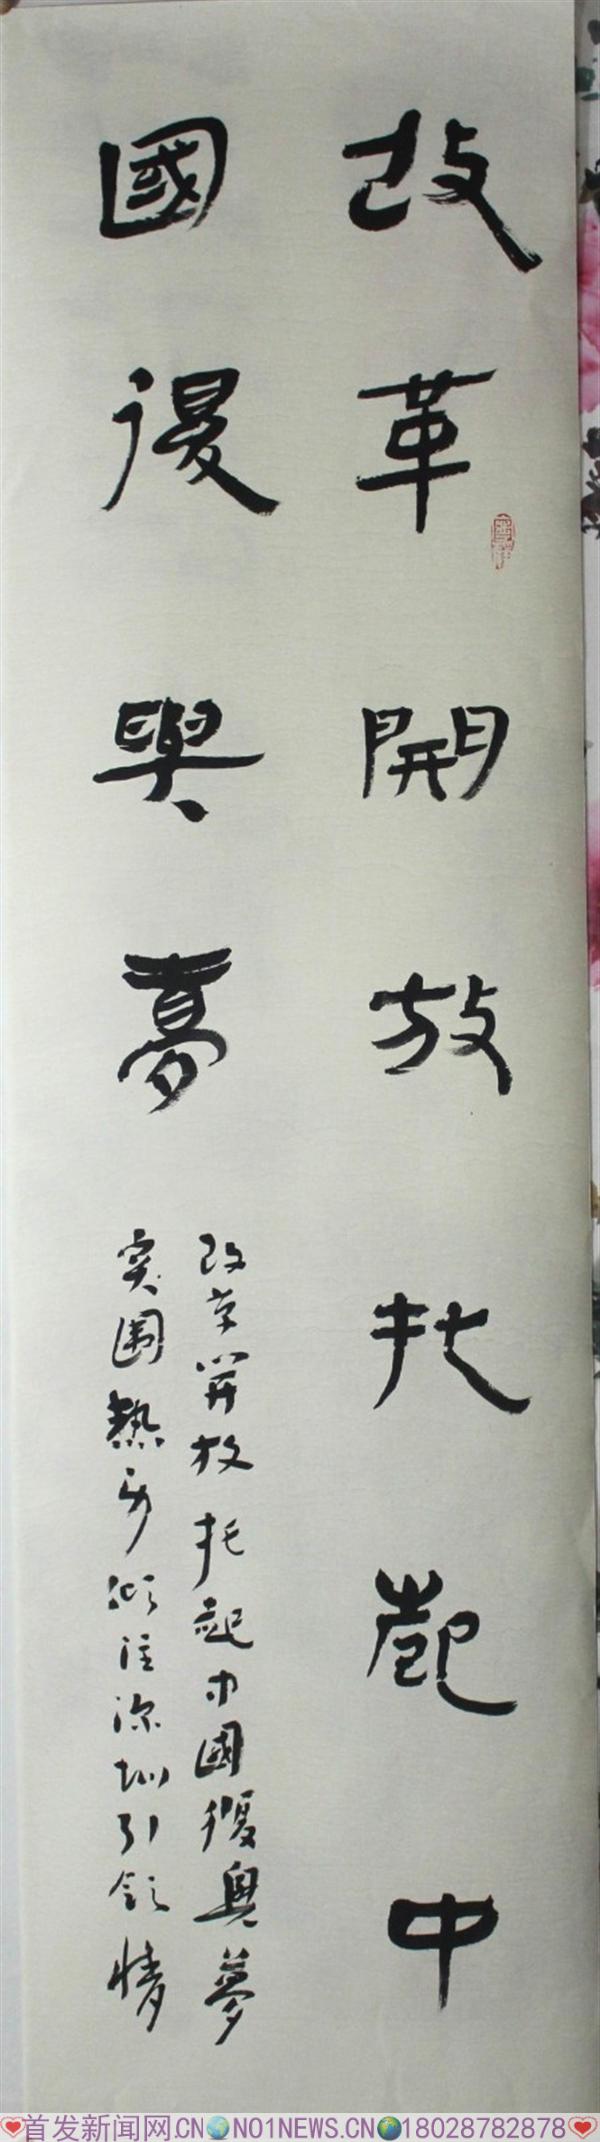 改革開放托起中
國復興夢
改革開放托起中國復興夢
突围熱力傾注深圳引領情
首发新闻网.CN NO1NEWS.CN 18028782878